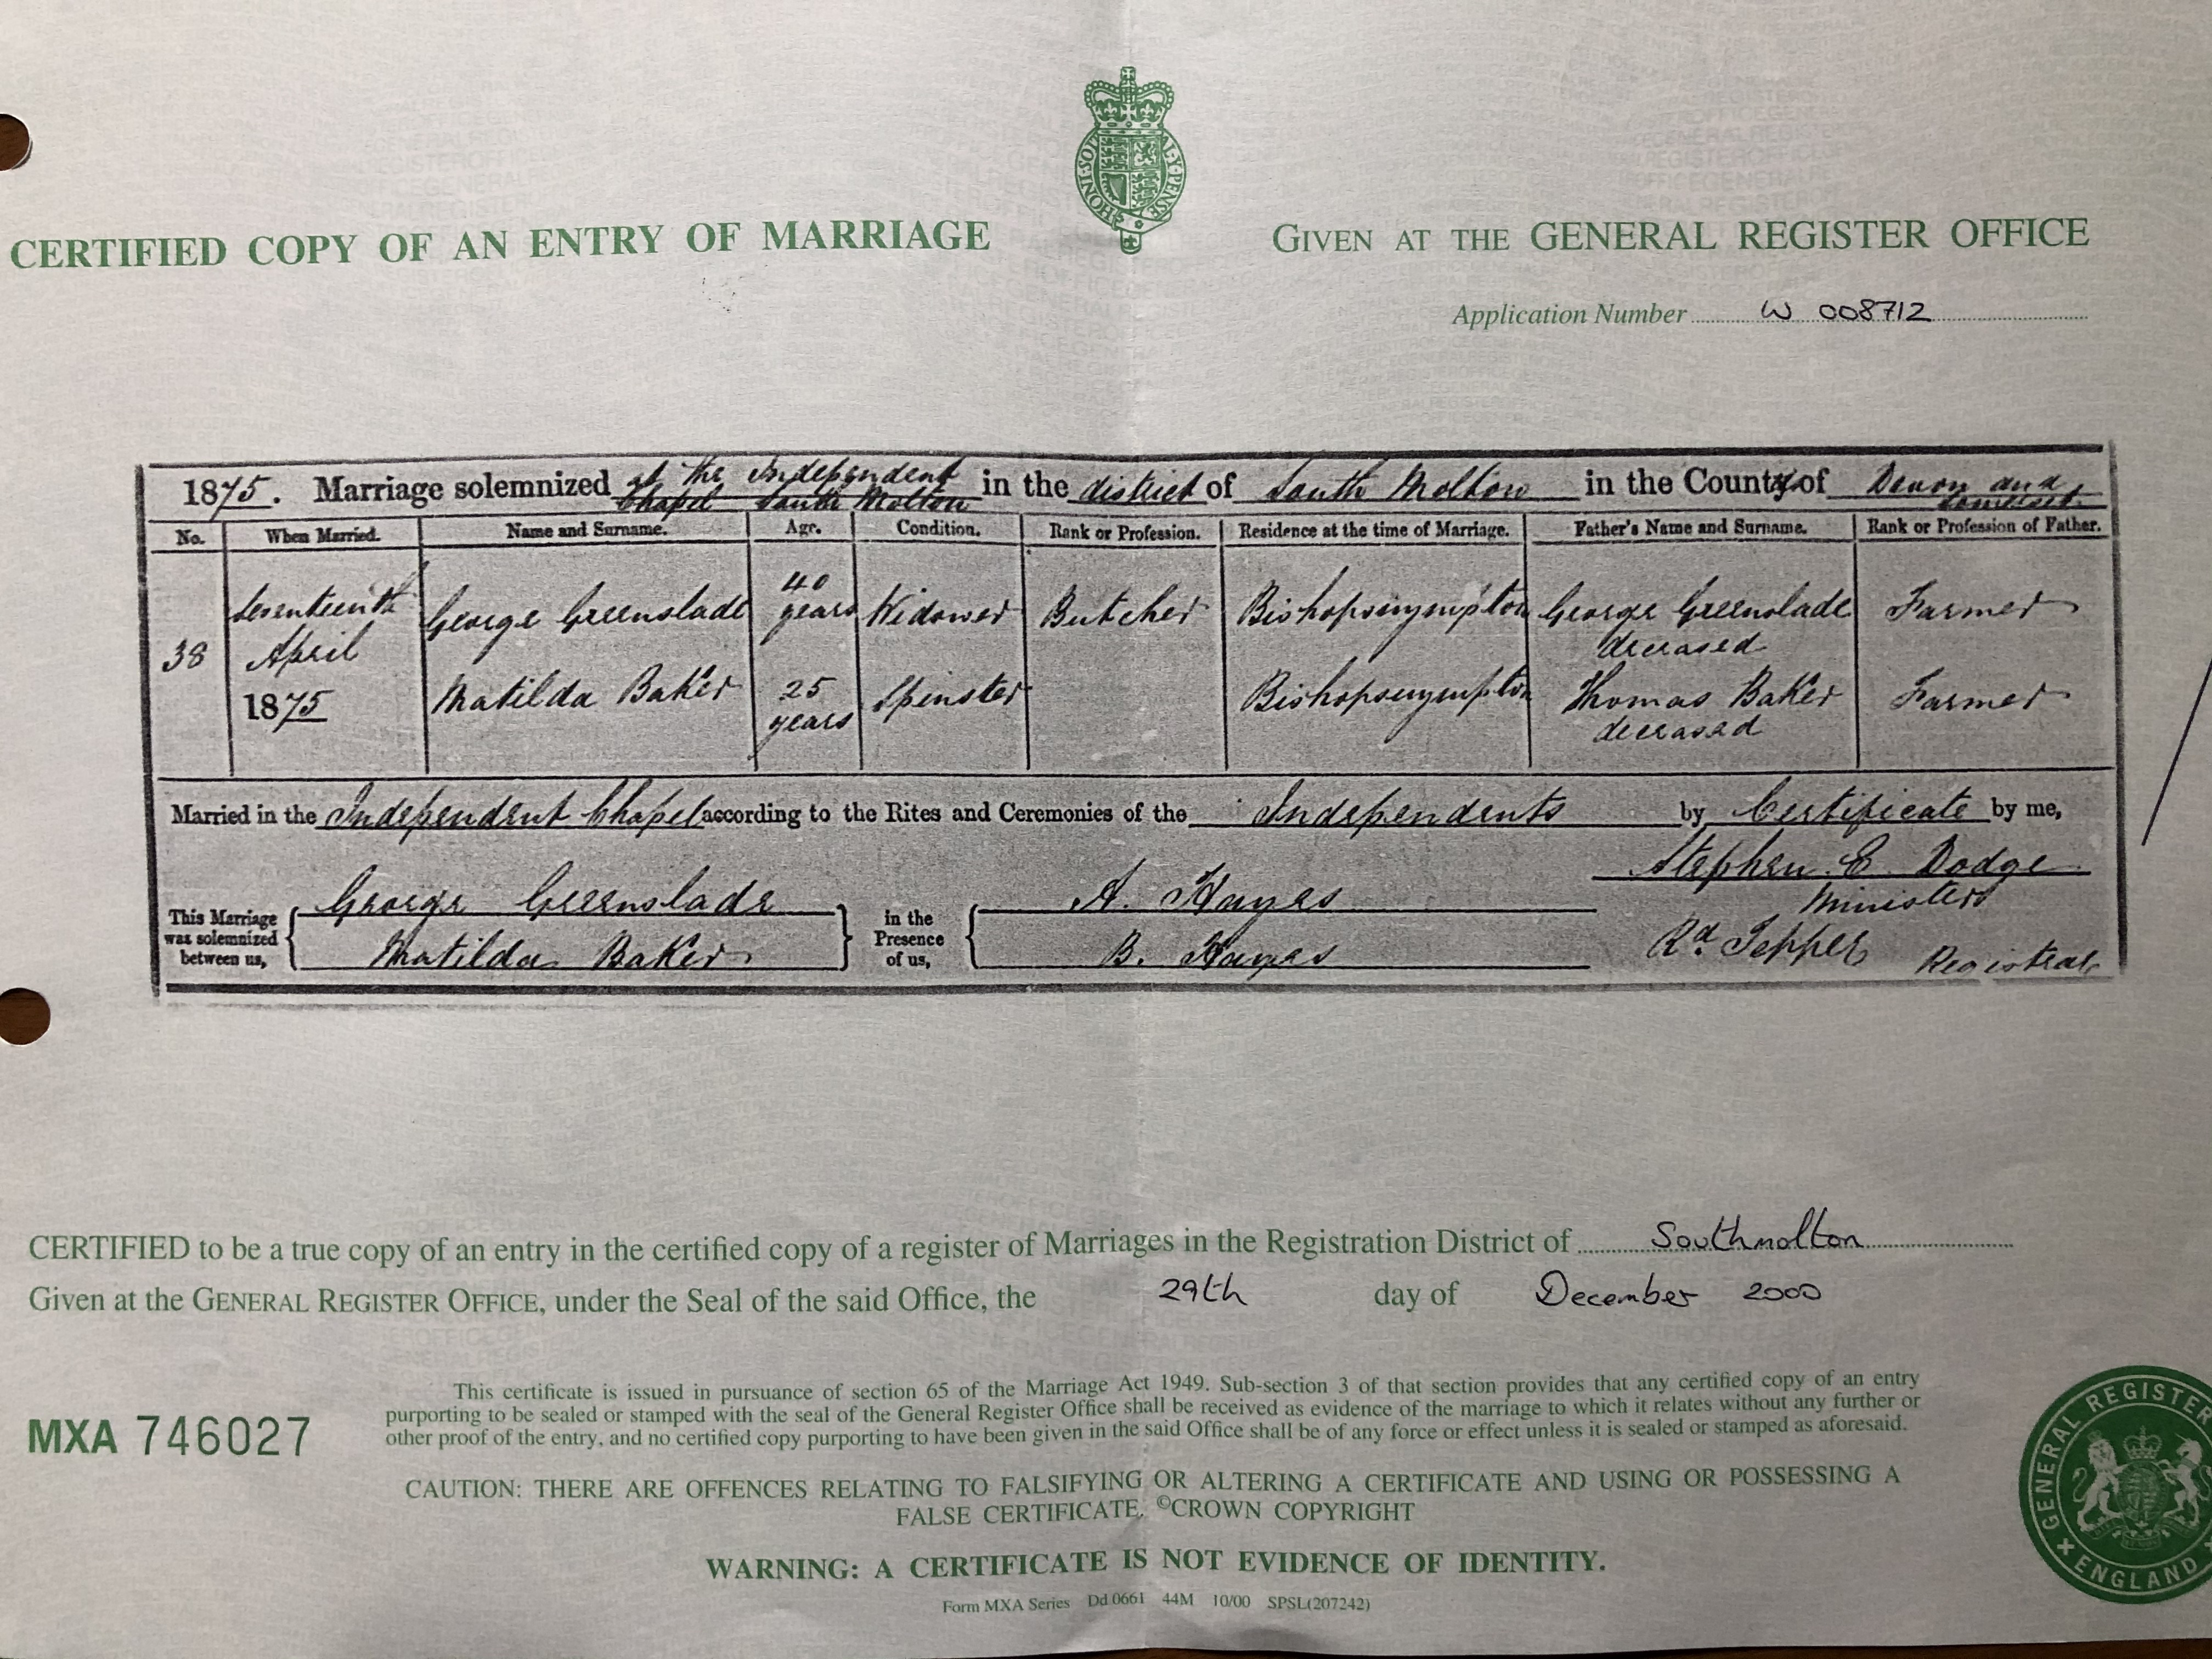 HONI·SOIT·QUI·MAL·Y·PENSE
CERTIFIED COPY OF AN ENTRY OF MARRIAGE
GIVEN AT THE GENERAL REGISTER OFFICE
Application Number W 008712
1875. Marriage solemnized at the Independent Chapel South Molton in the district of South Molton in the County of Devon and Somerset
No. When Married. Name and Surname. Age. Condition. Rank or Profession. Residence at the time of Marriage. Father's Name and Surname. Rank or Profession of Father.
38 Seventeenth April 1875
George Greenslade 40 years Widower Butcher Bishopsnympton George Greenslade deceased Farmer
Matilda Baker 25 years Spinster Bishopsnympton Thomas Baker deceased Farmer
Married in the Independent Chapel according to the Rites and Ceremonies of the Independents by Certificate by me,
Stephen E Dodge
Minister
This Marriage was solemnized between us, George Greenslade
Matilda Baker
in the Presence of us, A. Hayes
B. Hayes
Rd. Tepper Registrar
CERTIFIED to be a true copy of an entry in the certified copy of a register of Marriages in the Registration District of Southmolton
Given at the GENERAL REGISTER OFFICE, under the Seal of the said Office, the 29th day of December 2000
This certificate is issued in pursuance of section 65 of the Marriage Act 1949. Sub-section 3 of that section provides that any certified copy of an entry
purporting to be sealed or stamped with the seal of the General Register Office shall be received as evidence of the marriage to which it relates without any further or
other proof of the entry, and no certified copy purporting to have been given in the said Office shall be of any force or effect unless it is sealed or stamped as aforesaid.
MXA 746027
CAUTION: THERE ARE OFFENCES RELATING TO FALSIFYING OR ALTERING A CERTIFICATE AND USING OR POSSESSING A
FALSE CERTIFICATE. ©CROWN COPYRIGHT
WARNING: A CERTIFICATE IS NOT EVIDENCE OF IDENTITY.
Form MXA Series Dd 0661 44M 10/00 SPSL(207242)
GENERAL REGISTER
ENGLAND